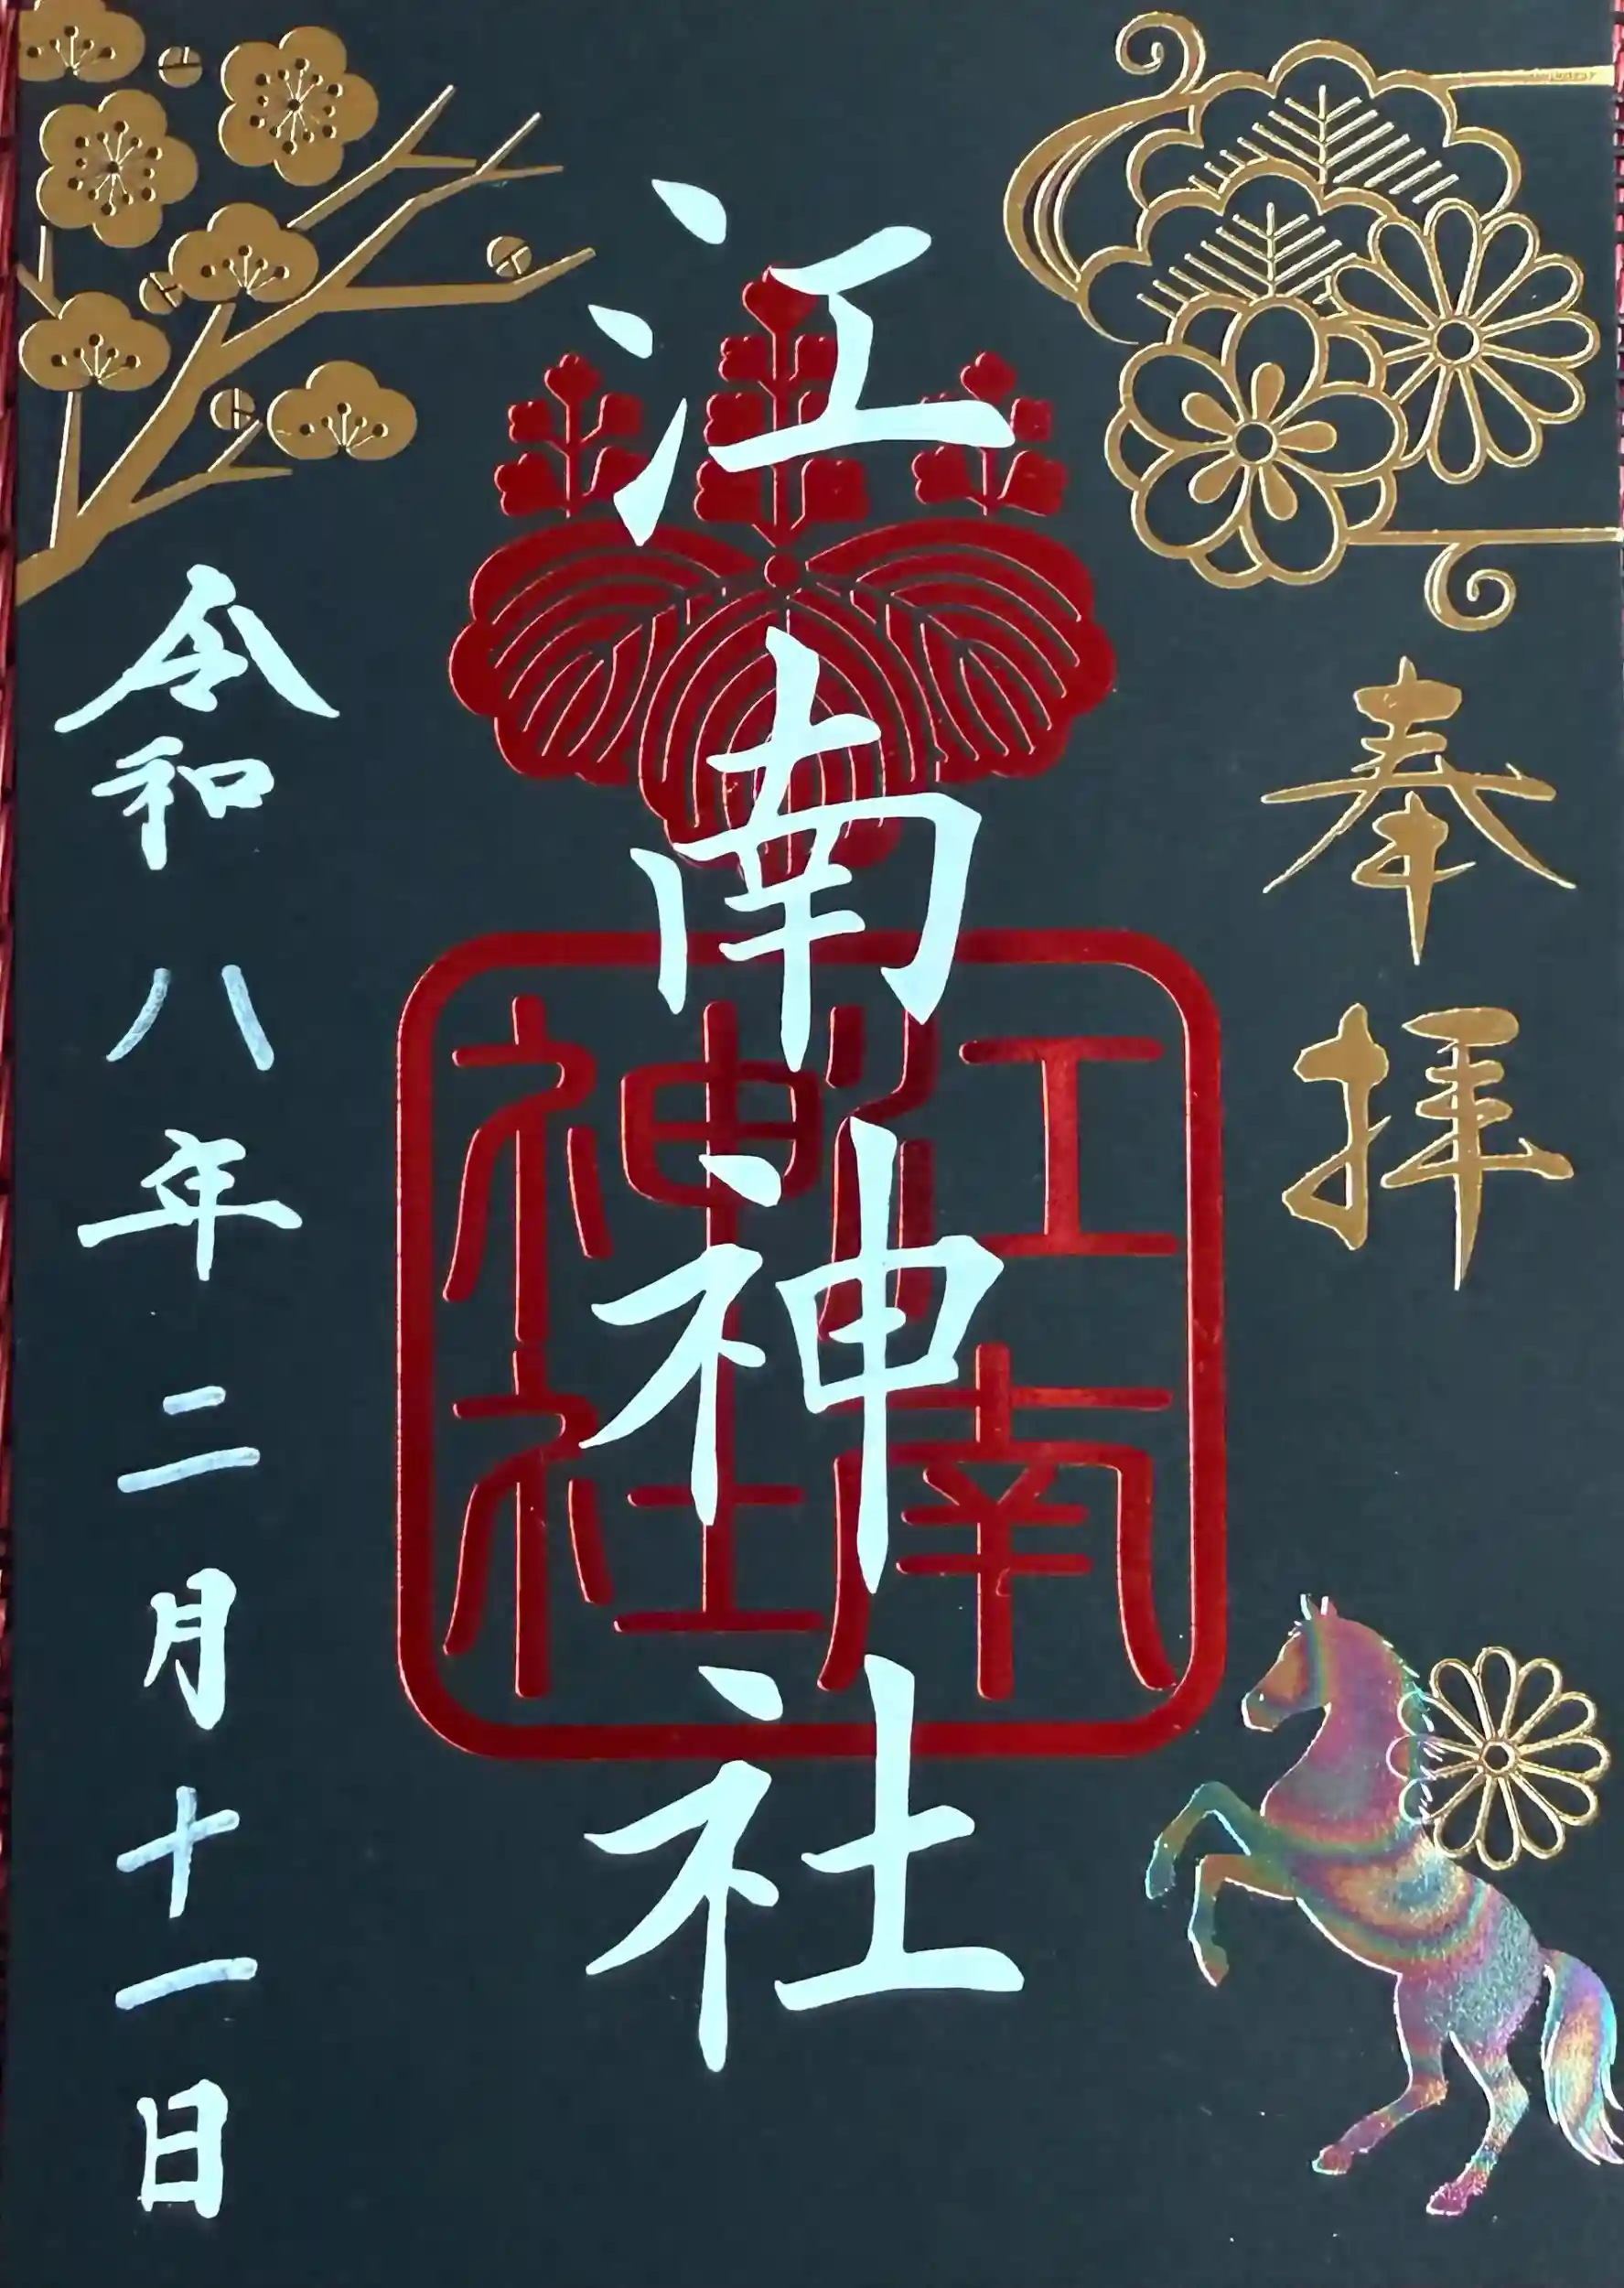 奉拝
江南神社
江南神社
令和八年二月十一日